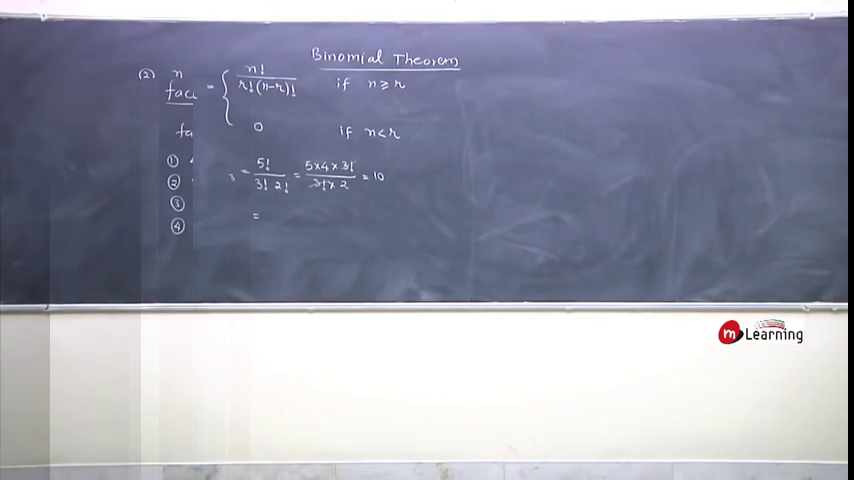 Binomial Theorem
(2) n = { n! / r!(n-r)! if n ≥ r
0 if n < r
① 
② 3 = 5! / 3! 2! = 5×4×3! / 3!×2 = 10
③
④ =
m Learning